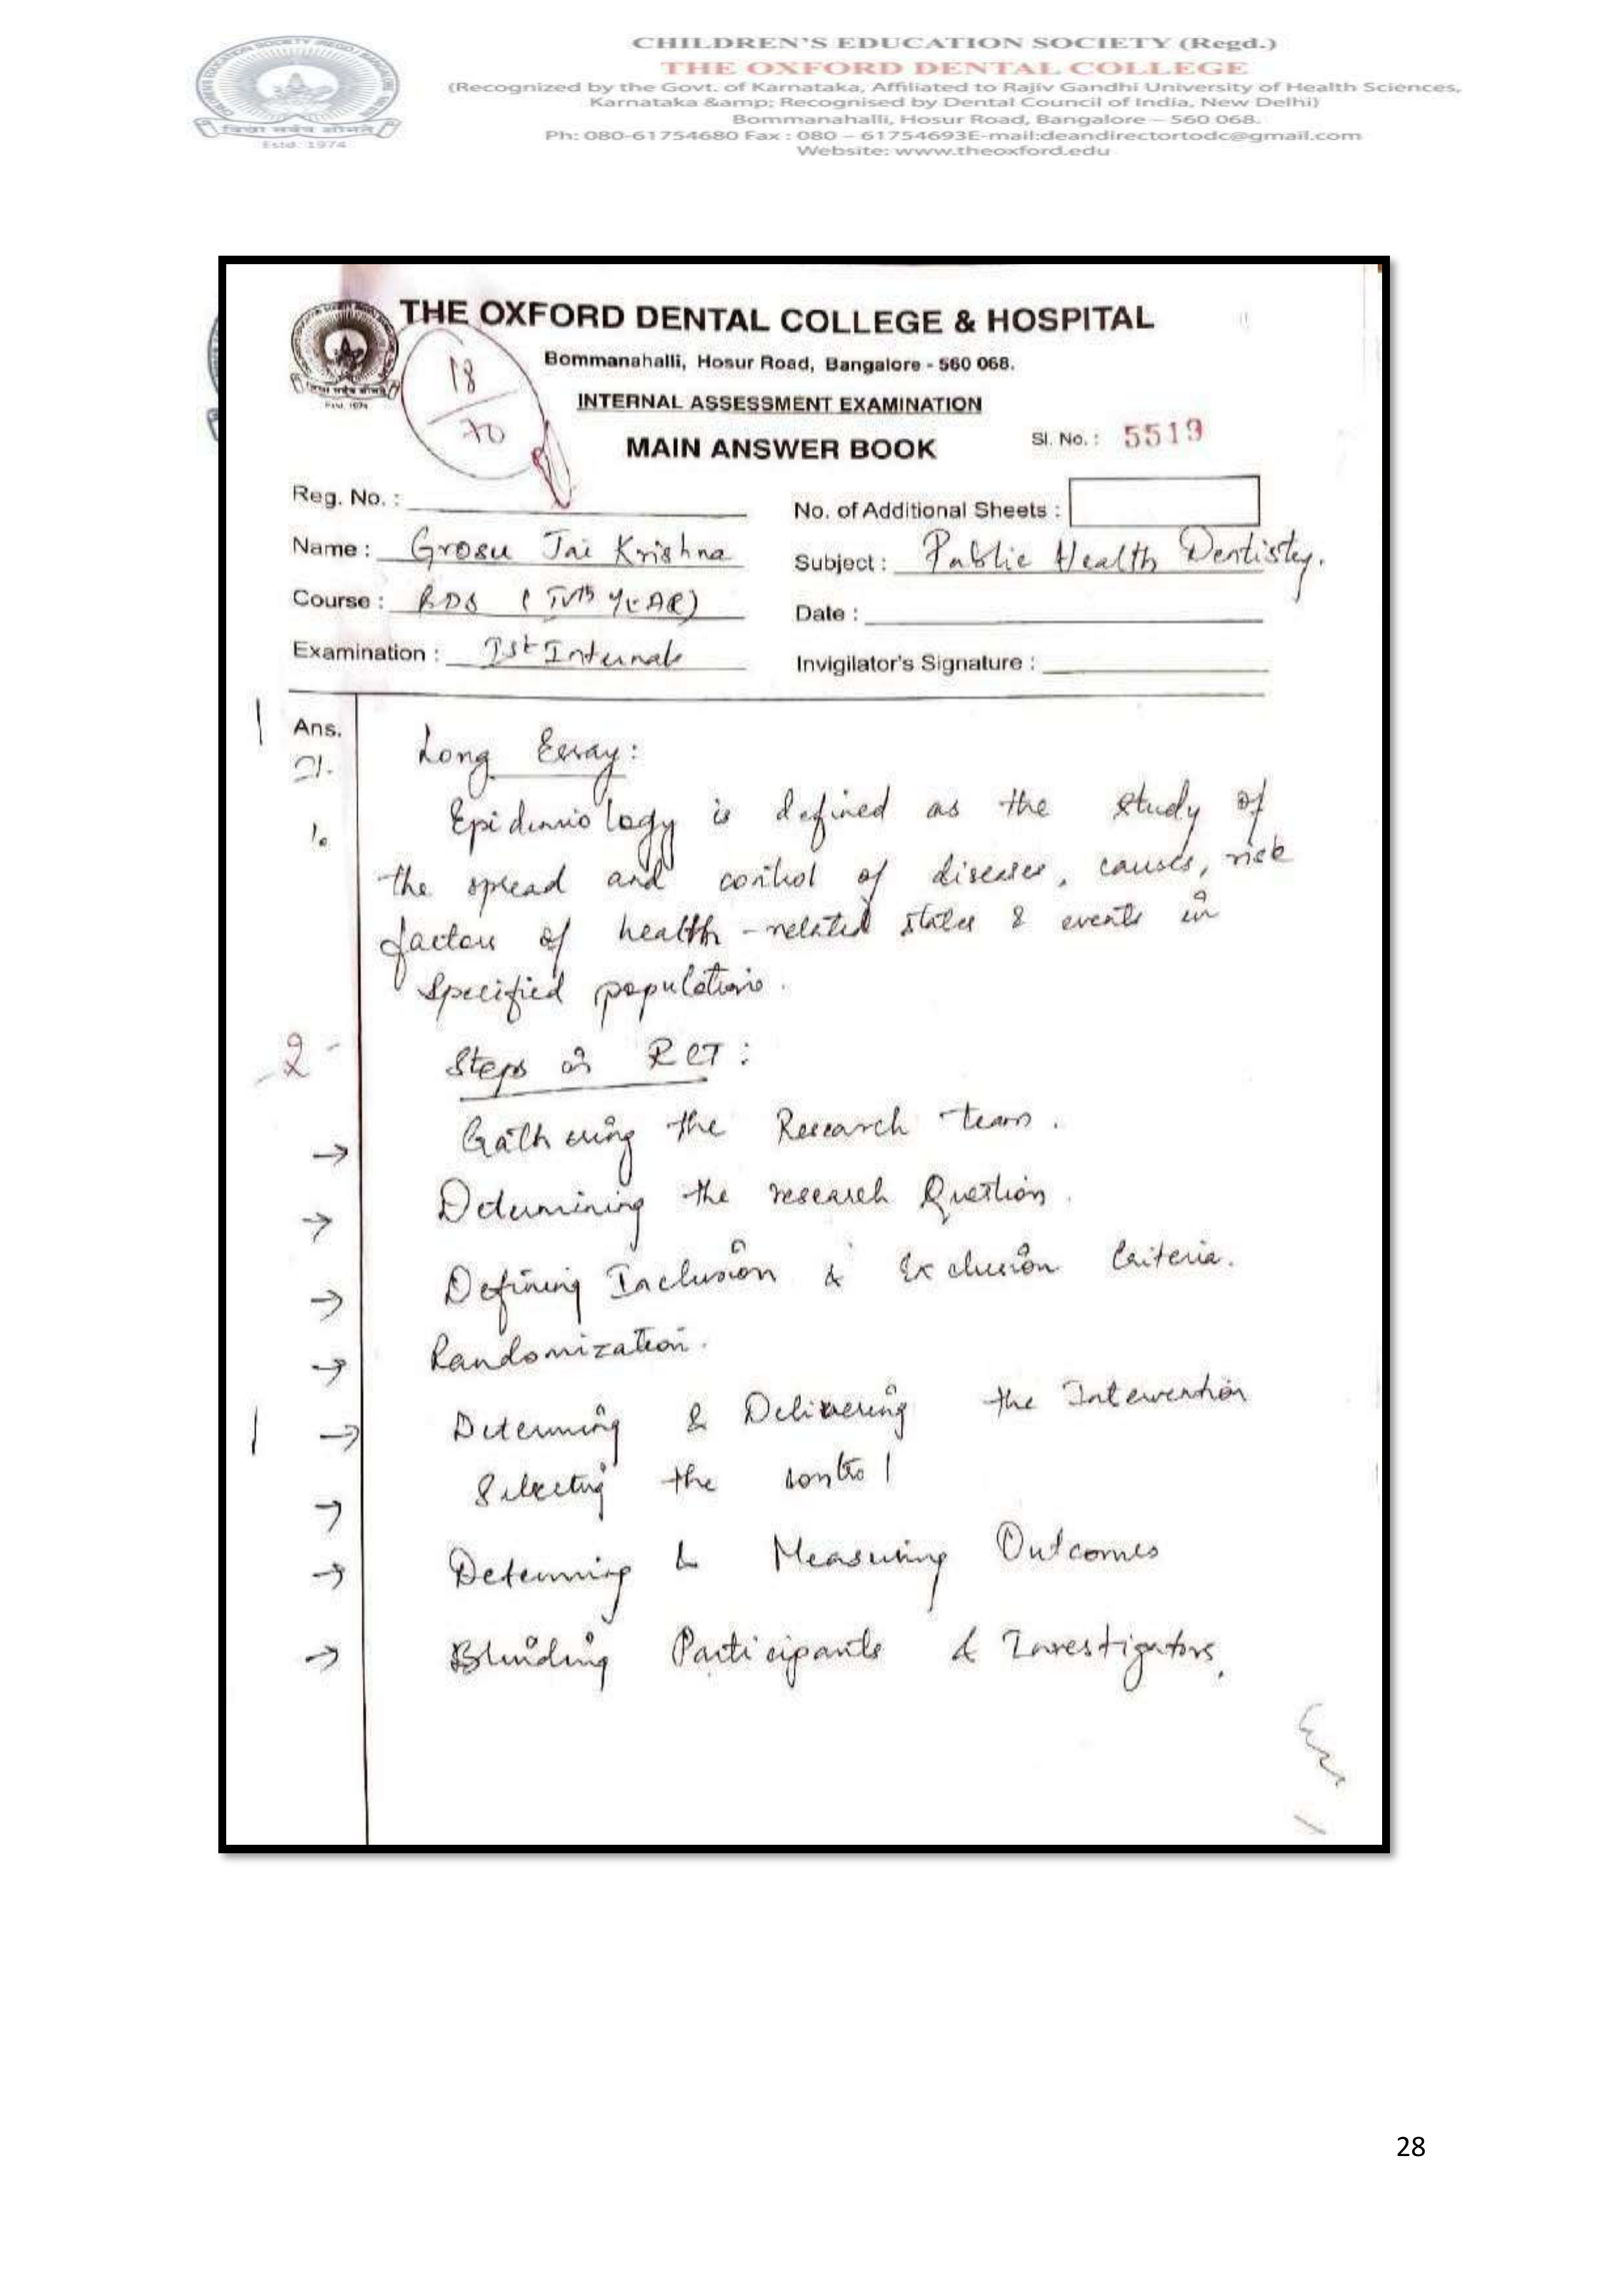 CHILDREN'S EDUCATION SOCIETY (Regd.)
THE OXFORD DENTAL COLLEGE
(Recognized by the Govt. of Karnataka, Affiliated to Rajiv Gandhi University of Health Sciences,
Karnataka &amp; Recognised by Dental Council of India, New Delhi)
Bommanahalli, Hosur Road, Bangalore – 560 068.
Ph: 080-61754680 Fax : 080 – 61754693E-mail:deandirectortodc@gmail.com
Website: www.theoxford.edu
Estd. 1974
THE OXFORD DENTAL COLLEGE & HOSPITAL
Bommanahalli, Hosur Road, Bangalore - 560 068.
18
70
INTERNAL ASSESSMENT EXAMINATION
MAIN ANSWER BOOK
Sl. No. : 5519
Reg. No. :
No. of Additional Sheets :
Name : Grosu Jai Krishna
Subject : Public Health Dentisty.
Course : BDS (IVth YEAR)
Date :
Examination : Ist Internals
Invigilator's Signature :
1 Ans.
Long Essay:
1. Epidemiology is defined as the study of
the spread and control of diseases, causes, risk
factors of health-related states & events in
specified populations.
2
Steps in RCT:
→ Gathering the Research team.
→ Determining the research Question.
→ Defining Inclusion & Exclusion Criteria.
→ Randomization.
1 → Determing & Delivering the Intervention
→ Selecting the control
→ Determing & Measuring Outcomes
→ Blinding Participants & Investigators.
28